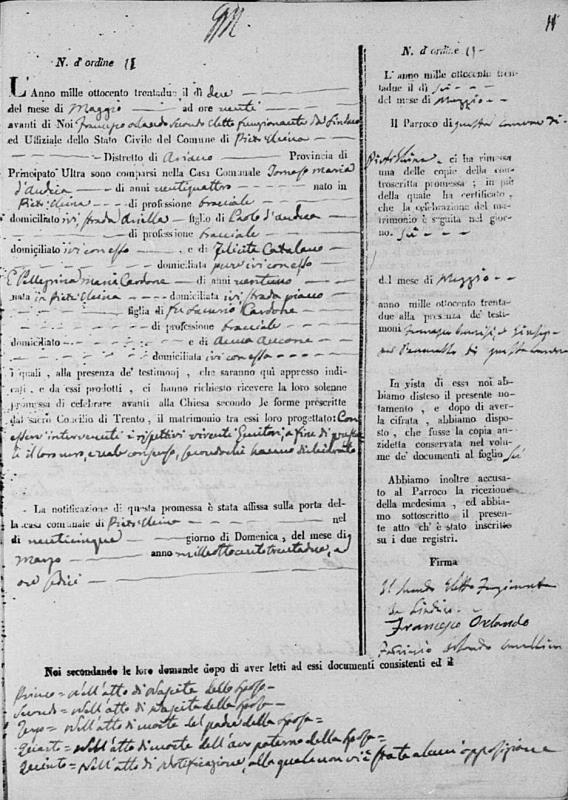 11
N. d'ordine 11
L'Anno mille ottocento trentadue il dì dere
del mese di Maggio ad ore venti
avanti di Noi Francesco Orlando Secondo Eletto funzionante da Sindaco
ed Uffiziale dello Stato Civile del Comune di Pietr'Elcina
Distretto di Ariano Provincia di
Principato Ultra sono comparsi nella Casa Comunale Tomaso Maria
d'Andrea di anni ventiquattro nato in
Pietr'Elcina di professione bracciale
domiciliato ivi strada figlio di Paolo d'Andrea
di professione bracciale
domiciliato ivi con esso e di Felicita Catalano
domiciliata pure ivi con esso
E Pellegrina Maria Cardone di anni ventuno
nata in Pietr'Elcina domiciliata ivi strada piano
figlia di fu Saverio Cardone
di professione bracciale
domiciliato e di Anna
domiciliata ivi con essa
i quali, alla presenza de' testimonj, che saranno qui appresso indi-
cati, e da essi prodotti, ci hanno richiesto ricevere la loro solenne
promessa di celebrare avanti alla Chiesa secondo le forme prescritte
dal sacro Concilio di Trento, il matrimonio tra essi loro progettato: Con
essere intervenuti i rispettivi viventi Genitori, a fine di
il loro
La notificazione di questa promessa è stata affissa sulla porta del-
la casa comunale di Pietr'Elcina nel
dì venticinque giorno di Domenica, del mese di
Marzo anno mille ottocento trentadue, ad
ore sedici
N. d'ordine 11
L'anno mille ottocento tren-
tadue il dì
del mese di Maggio
Il Parroco di questa comune di
Pietr'Elcina ci ha rimessa
una delle copie della con-
troscritta promessa; in piè
della quale ha certificato,
che la celebrazione del ma-
trimonio è seguita nel gior-
no
del mese di Maggio
anno mille ottocento trenta-
due alla presenza de' testi-
moni
di questa comune
In vista di essa noi ab-
biamo disteso il presente no-
tamento, e dopo di aver-
la cifrata, abbiamo dispo-
sto, che fusse la copia an-
zidetta conservata nel volu-
me de' documenti al foglio
Abbiamo inoltre accusa-
to al Parroco la ricezione
della medesima, ed abbia-
mo sottoscritto il presen-
te atto ch'è stato inscritto
su i due registri.
Firma
Il Secondo Eletto Funzionante
da Sindaco
Francesco Orlando
Noi secondando le loro domande dopo di aver letti ad essi documenti consistenti ed il
Primo = Nell'atto di Nascita dello sposo =
Secondo = Nell'atto di Nascita della sposa =
Terzo = Nell'atto di morte del padre della sposa =
Quarto = Nell'atto di morte dell'avo paterno della sposa =
Quinto = Nell'atto di Notificazione, alla quale non vi è stata alcuna opposizione